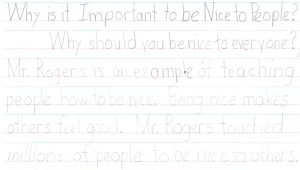 Why is it Important to be Nice to People?
Why should you be nice to everyone?
Mr. Rogers is an example of teaching
people how to be nice. Being nice makes
others feel good. Mr. Rogers touched
millions of people to be nice to others.